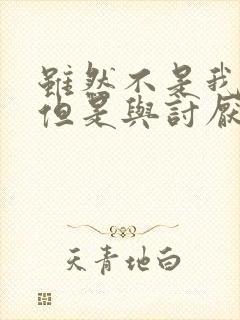 雖然不是我
但是與討厭
天青地白